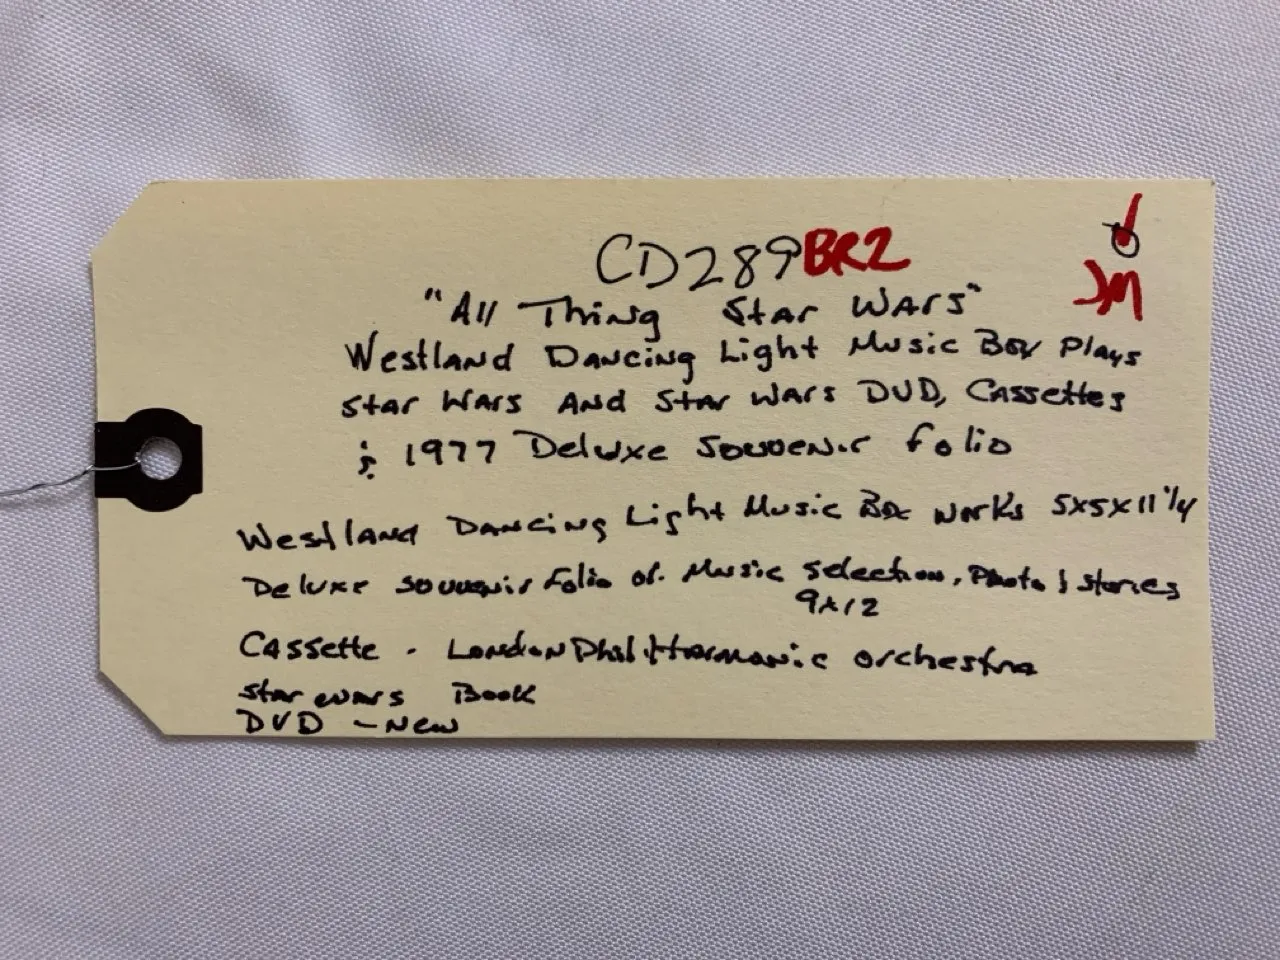 CD289BR2
JM
"All Thing Star Wars"
Westland Dancing Light Music Box Plays
Star Wars And Star Wars DVD, Cassettes
& 1977 Deluxe Souvenir Folio
Westland Dancing Light Music Box works 5x5x11 1/4
Deluxe Souvenir Folio of Music Selection, Photo & Stories
9x12
Cassette - London Philharmonic Orchestra
Star Wars Book
DVD - New